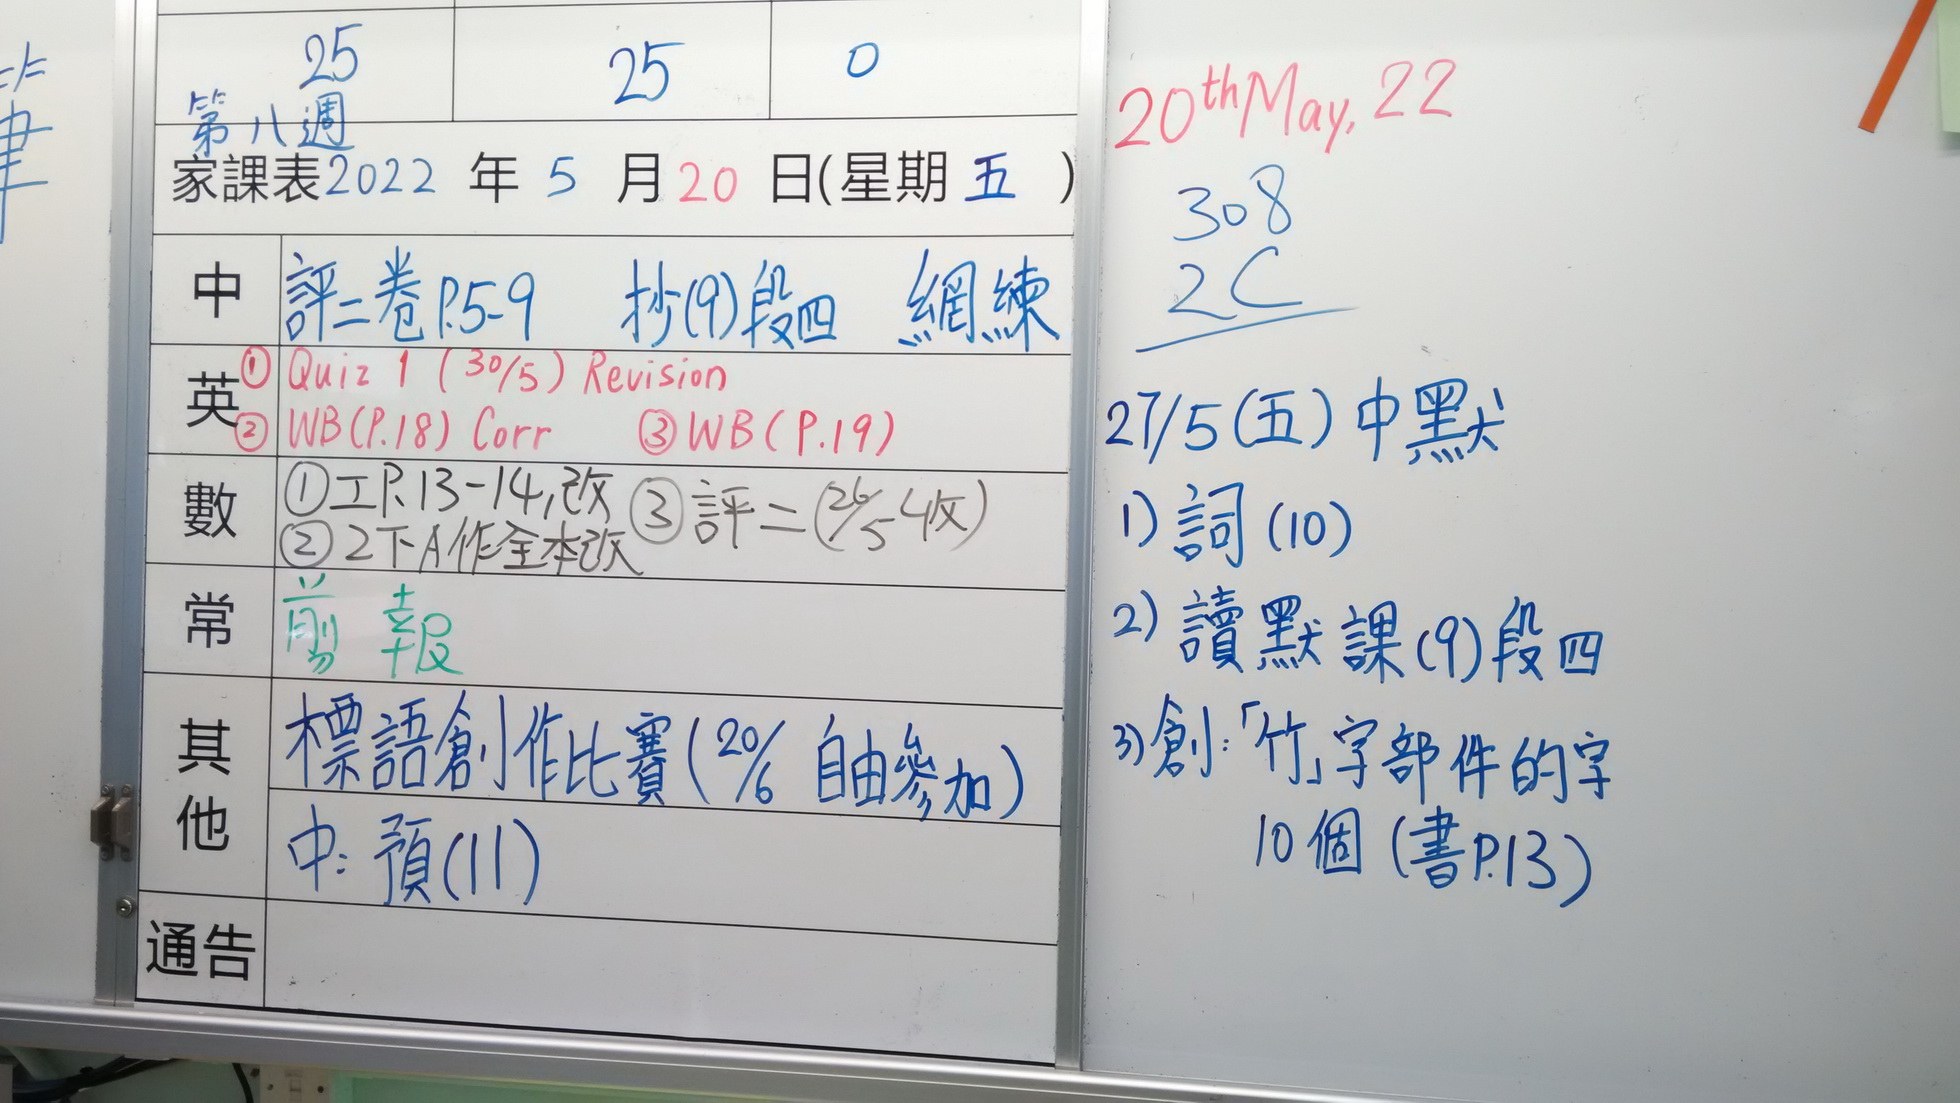 25 25 0
第八週
家課表2022年5月20日(星期五)
中 評二卷P.5-9 抄(9)段四 網練
英 ① Quiz 1 (30/5) Revision
② WB(P.18) Corr ③ WB(P.19)
數 ①工P.13-14,改 ③評二(26/5收)
②2下A作全本改
常 剪報
其他 標語創作比賽(20/6 自由參加)
中:預(11)
通告
20th May, 22
308
2C
27/5(五)中默
1)詞(10)
2)讀默課(9)段四
3)創:「竹」字部件的字
10個(書P.13)